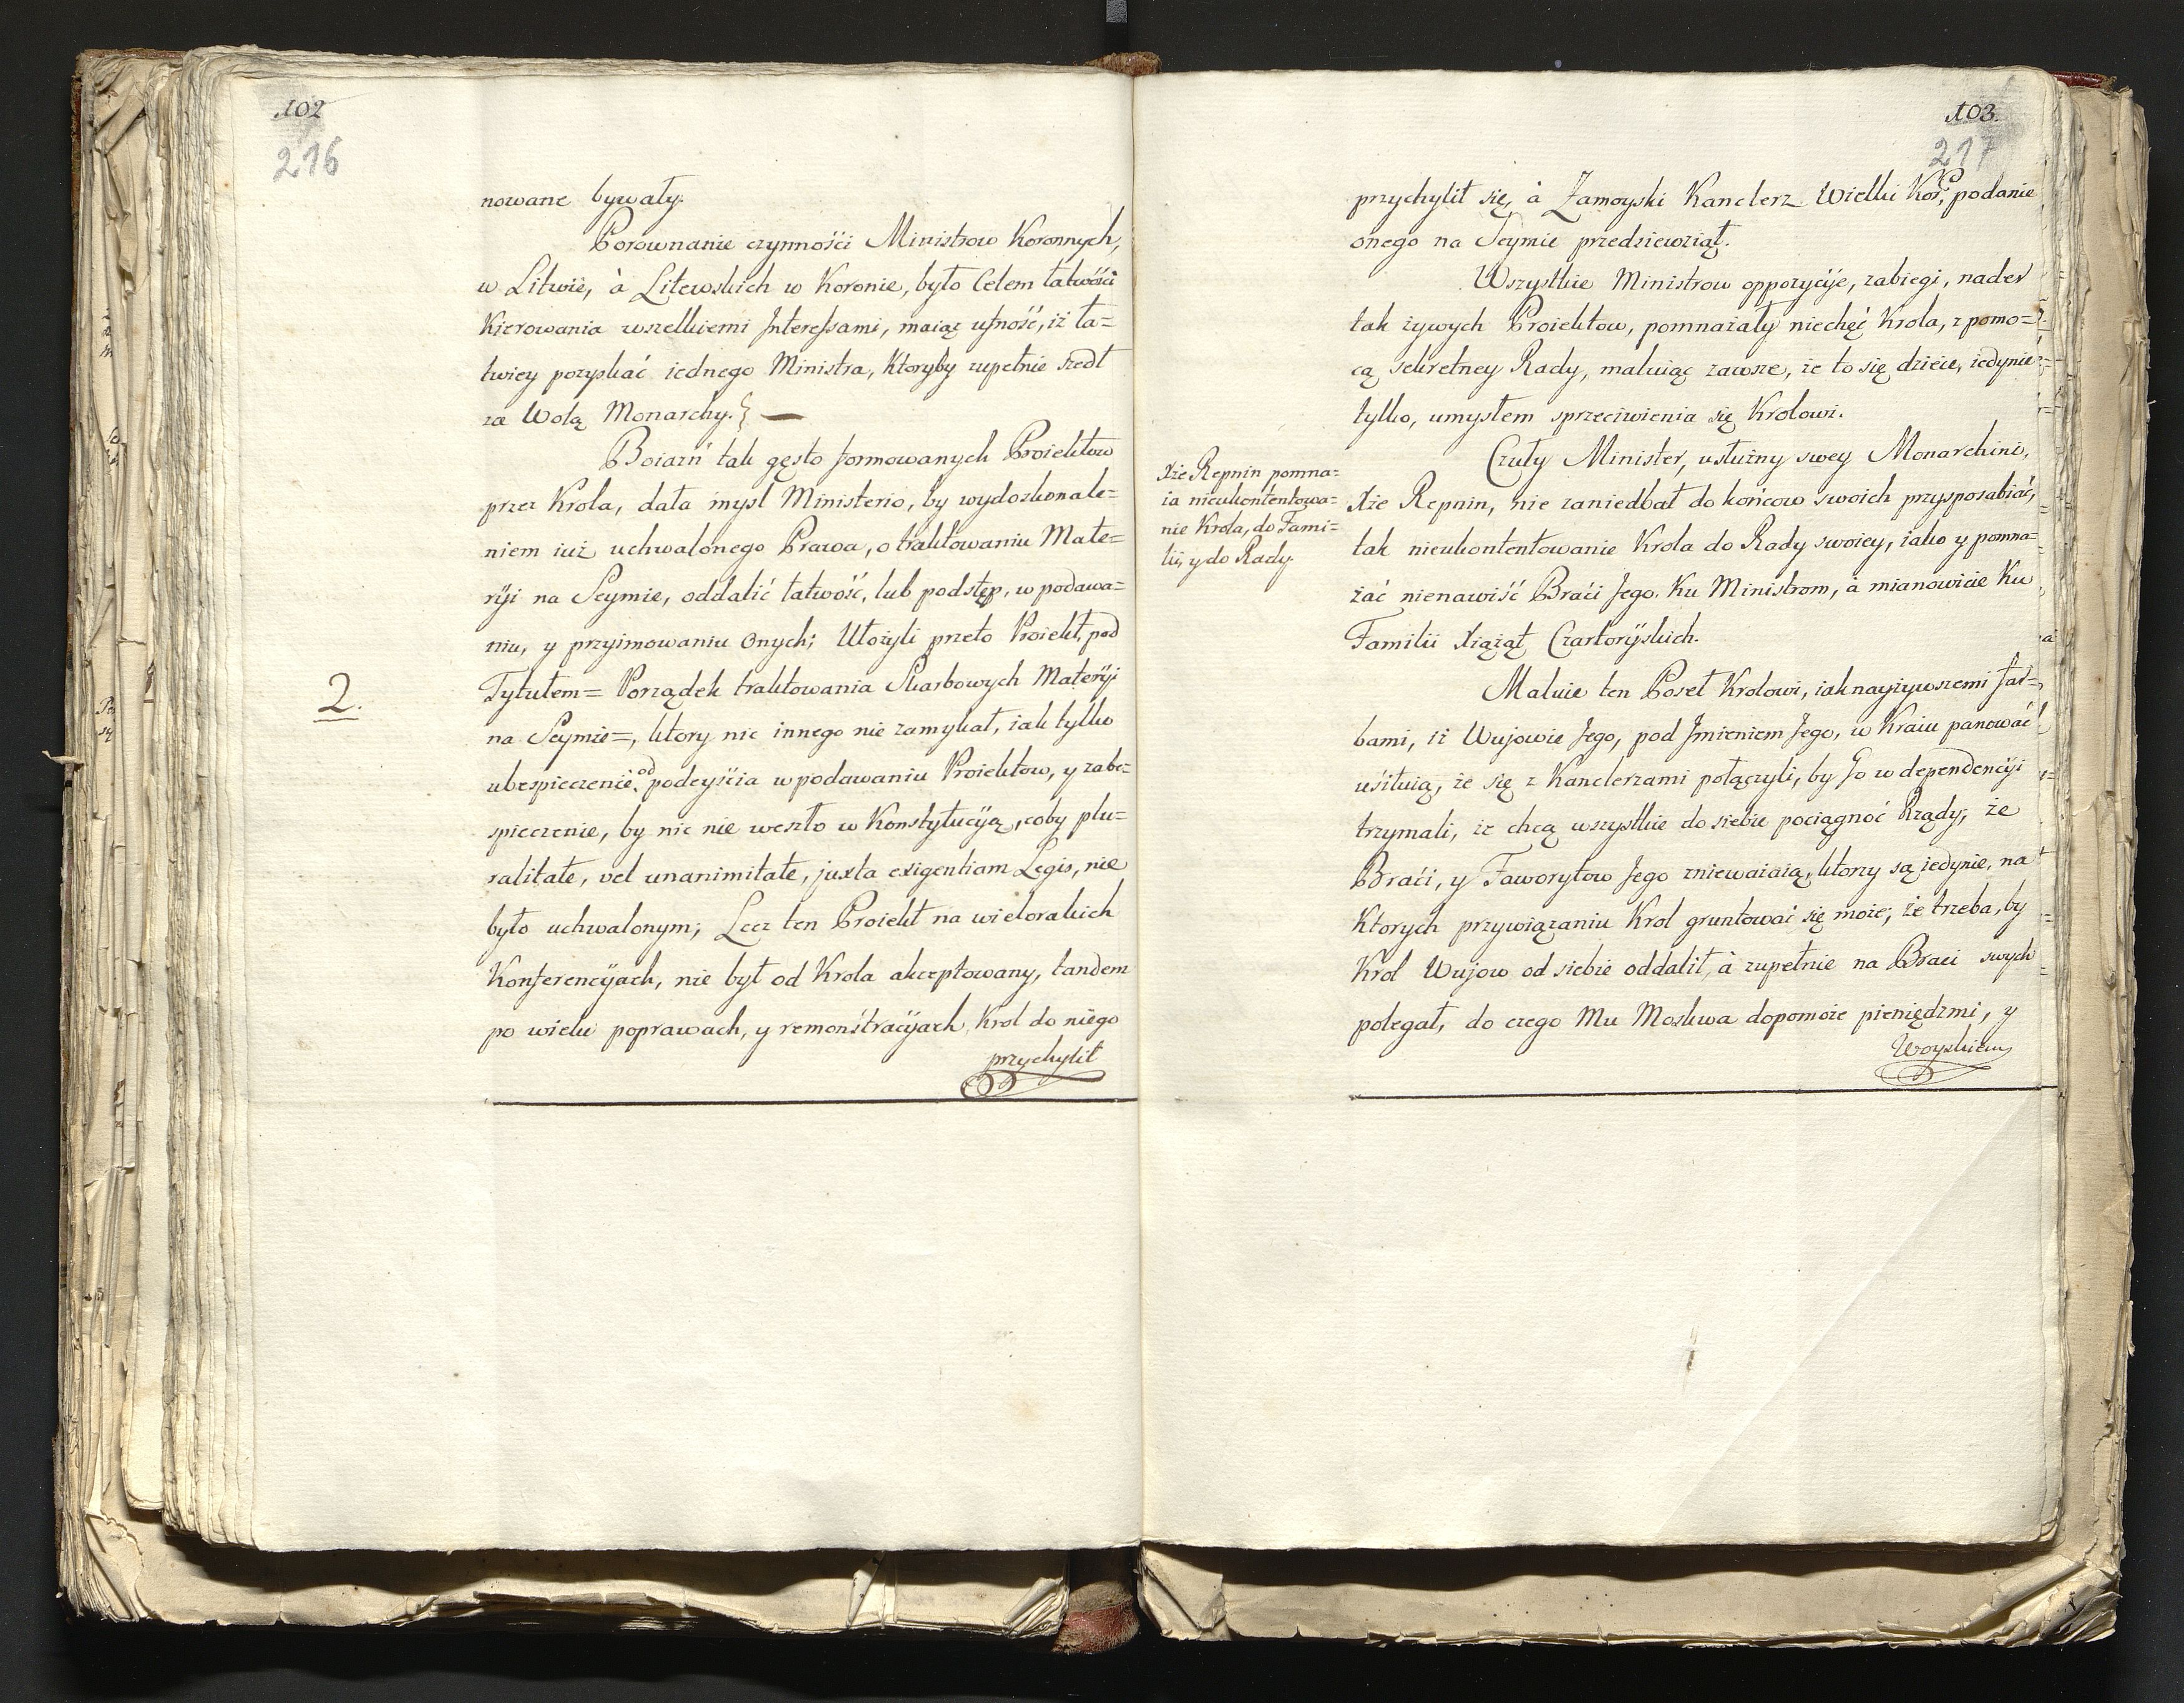 102
216
nowane bywały.
Porownanie czynnośći Ministrow Koronnych,
w Litwie, à Litewskich w Koronie, było Celem łatwośći
Kierowania wszelkiemi Interessami, maiąc ufność, iż ła=
twiey pozyskać iednego Ministra, Ktoryby zupełnie szedł
za Wolą Monarchy.} —
Boiazń tak gęsto formowanych Proiektow
przez Krola, dała mysl Ministerio, by wydoskonale=
niem iuż uchwalonego Prawa, o traktowaniu Mate=
ryi na Seymie, oddalić łatwość, lub podstęp, w podawa=
niu, y przyimowaniu Onych; Ułożyli przeto Proiekt, pod
2.
Tytułem= Porządek traktowania Skarbowych Materyi
na Seymie=, ktory nic innego nie zamykał, iak tylko
ubespieczenie od podeyścia w podawaniu Proiektow, y zabe=
spieczenie, by nic nie weszło w Konstytucyą, coby plu=
ralitate, vel unanimitate, juxta exigentiam Legis, nie
było uchwalonym; Lecz ten Proiekt na wielorakich
Konferencyach, nie był od Krola akceptowany, tandem
po wielu poprawach, y remonstracyach, Krol do niego
przychylił
103.
217
przychylił się, à Zamoyski Kanclerz Wielki Kor. podanie
onego na Seymie przedsiewziął.
Wszystkie Ministrow oppozycye, zabiegi, nader
tak żywych Proiektow, pomnażały niechęć Krola, z pomo=
cą sekretney Rady, maluiąc zawsze, że to się dzieie, iedynie
tylko, umysłem sprzeciwienia się Krolowi.
Xże Repnin pomna=
ia nieukontentowa=
nie Krola, do Fami=
lii, y do Rady
Czuły Minister, usłużny swey Monarchini,
Xże Repnin, nie zaniedbał do końcow swoich przysposabiać,
tak nieukontentowanie Krola do Rady swoiey, iako y pomna=
żać nienawiść Braći Jego. Ku Ministrom, à mianowicie Ku
Familii Xiążąt Czartoryskich.
Maluie ten Poseł Krolowi, iak nayżywszemi far=
bami, iż Wujowie Jego, pod Jmieniem Jego, w Kraiu panować
usiłuią, że się z Kanclerzami połączyli, by Go w dependencyi
trzymali, że chcą wszystkie do siebie pociągnoć Rządy, że
Braći, y Faworytow Jego zniewaiaią, ktorzy są iedynie, na
Ktorych przywiązaniu Krol gruntować się może; że trzeba, by
Krol Wujow od siebie oddalił, à zupełnie na Braci swych
polegał, do czego Mu Moskwa dopomoże pieniędzmi, y
Woyskiem